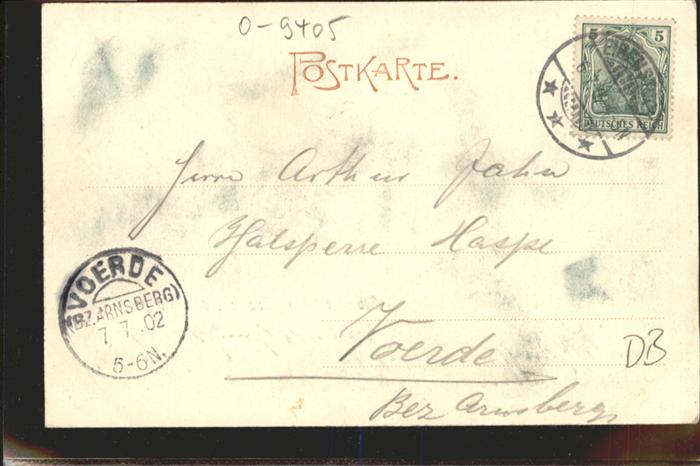 0-9405
POSTKARTE.
5 5
DEUTSCHES REICH
Herrn Arthur Jahn
Halsperre Haspe
VOERDE
(BZ. ARNSBERG)
7 7 .02
5-6N.
Voerde
DB
Bez Arnsberg